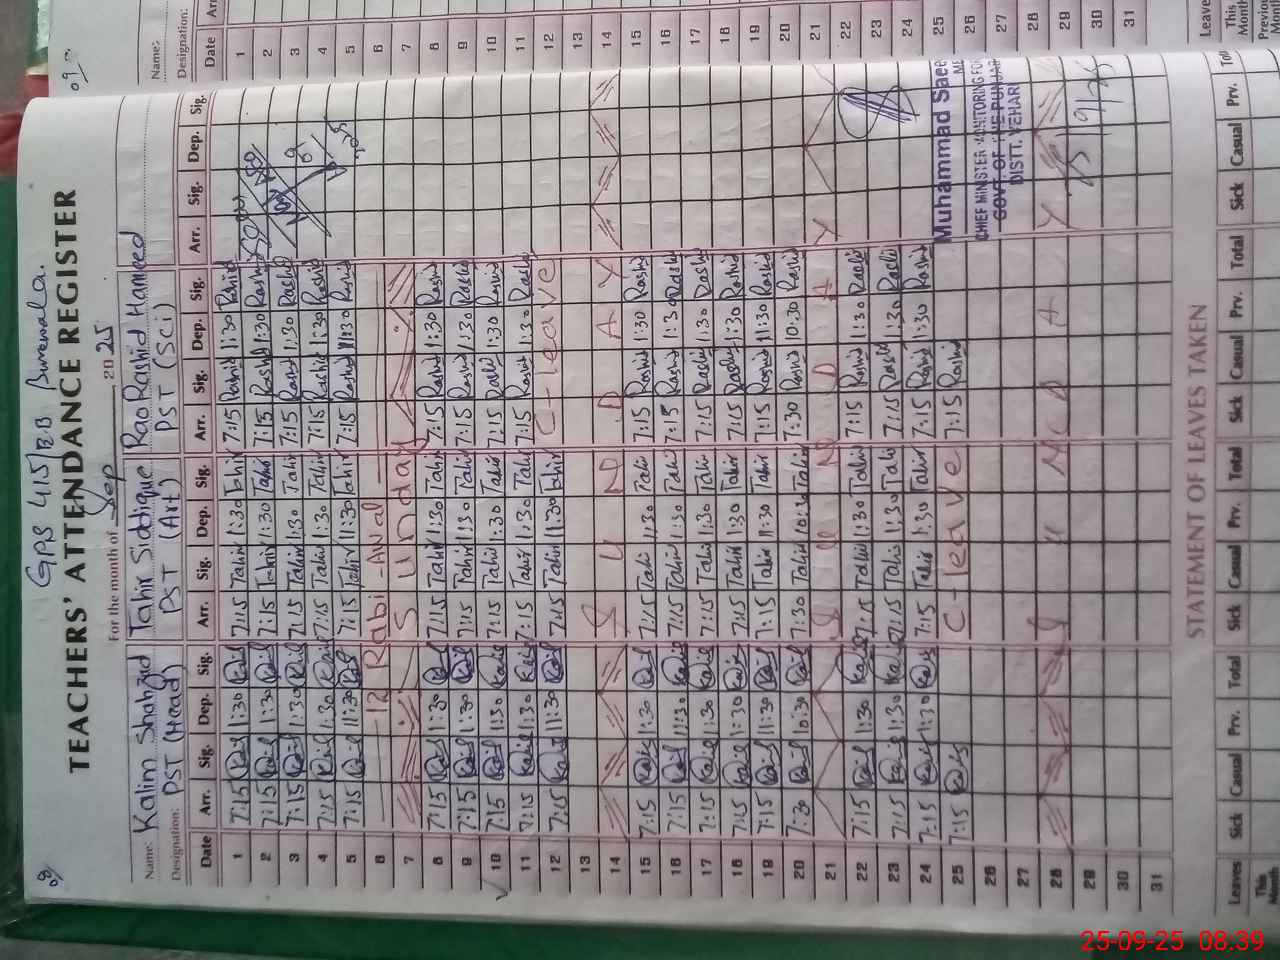 GPS 415/EB Burewala.
TEACHERS' ATTENDANCE REGISTER
For the month of Sep 2025
Name: Kalim Shahzad Tahir Siddique Rao Rashid Hameed
Designation: PST (Head) PST (Art) PST (Sci)
Date Arr. Sig. Dep. Sig. Arr. Sig. Dep. Sig. Arr. Sig. Dep. Sig. Arr. Sig. Dep. Sig.
1 7:15 Kalim 1:30 Kalim 7:15 Tahir 1:30 Tahir 7:15 Rashid 1:30 Rashid
2 7:15 Kalim 1:30 Kalim 7:15 Tahir 1:30 Tahir 7:15 Rashid 1:30 Rashid
3 7:15 Kalim 1:30 Kalim 7:15 Tahir 1:30 Tahir 7:15 Rashid 1:30 Rashid
4 7:15 Kalim 1:30 Kalim 7:15 Tahir 1:30 Tahir 7:15 Rashid 1:30 Rashid
5 7:15 Kalim 11:30 Kalim 7:15 Tahir 11:30 Tahir 7:15 Rashid 11:30 Rashid
6 12 Rabi-Awal
7 Sunday
8 7:15 Kalim 1:30 Kalim 7:15 Tahir 1:30 Tahir 7:15 Rashid 1:30 Rashid
9 7:15 Kalim 1:30 Kalim 7:15 Tahir 1:30 Tahir 7:15 Rashid 1:30 Rashid
10 7:15 Kalim 1:30 Kalim 7:15 Tahir 1:30 Tahir 7:15 Rashid 1:30 Rashid
11 7:15 Kalim 1:30 Kalim 7:15 Tahir 1:30 Tahir 7:15 Rashid 1:30 Rashid
12 7:15 Kalim 11:30 Kalim 7:15 Tahir 11:30 Tahir C-leave
13
14 SUNDAY
15 7:15 Kalim 1:30 Kalim 7:15 Tahir 1:30 Tahir 7:15 Rashid 1:30 Rashid
16 7:15 Kalim 1:30 Kalim 7:15 Tahir 1:30 Tahir 7:15 Rashid 1:30 Rashid
17 7:15 Kalim 1:30 Kalim 7:15 Tahir 1:30 Tahir 7:15 Rashid 1:30 Rashid
18 7:15 Kalim 1:30 Kalim 7:15 Tahir 1:30 Tahir 7:15 Rashid 1:30 Rashid
19 7:15 Kalim 11:30 Kalim 7:15 Tahir 11:30 Tahir 7:15 Rashid 11:30 Rashid
20 7:30 Kalim 10:30 Kalim 7:30 Tahir 10:30 Tahir 7:30 Rashid 10:30 Rashid
21 SUNDAY
22 7:15 Kalim 1:30 Kalim 7:15 Tahir 1:30 Tahir 7:15 Rashid 1:30 Rashid
23 7:15 Kalim 1:30 Kalim 7:15 Tahir 1:30 Tahir 7:15 Rashid 1:30 Rashid
24 7:15 Kalim 1:30 Kalim 7:15 Tahir 1:30 Tahir 7:15 Rashid 1:30 Rashid
25 7:15 Kalim C-leave 7:15 Rashid
Muhammad Saee
CHIEF MINISTER MONITORING FOR
GOVT. OF THE PUNJAB
DISTT. VEHARI
26
27
28 SUNDAY
29
30
31
STATEMENT OF LEAVES TAKEN
Leaves Sick Casual Prv. Total Sick Casual Prv. Total Sick Casual Prv. Total Sick Casual Prv. Total
This Month
Name:
Designation:
Date Arr
1
2
3
4
5
6
7
8
9
10
11
12
13
14
15
16
17
18
19
20
21
22
23
24
25
26
27
28
29
30
31
Leaves
This Month
25-09-25 08.39